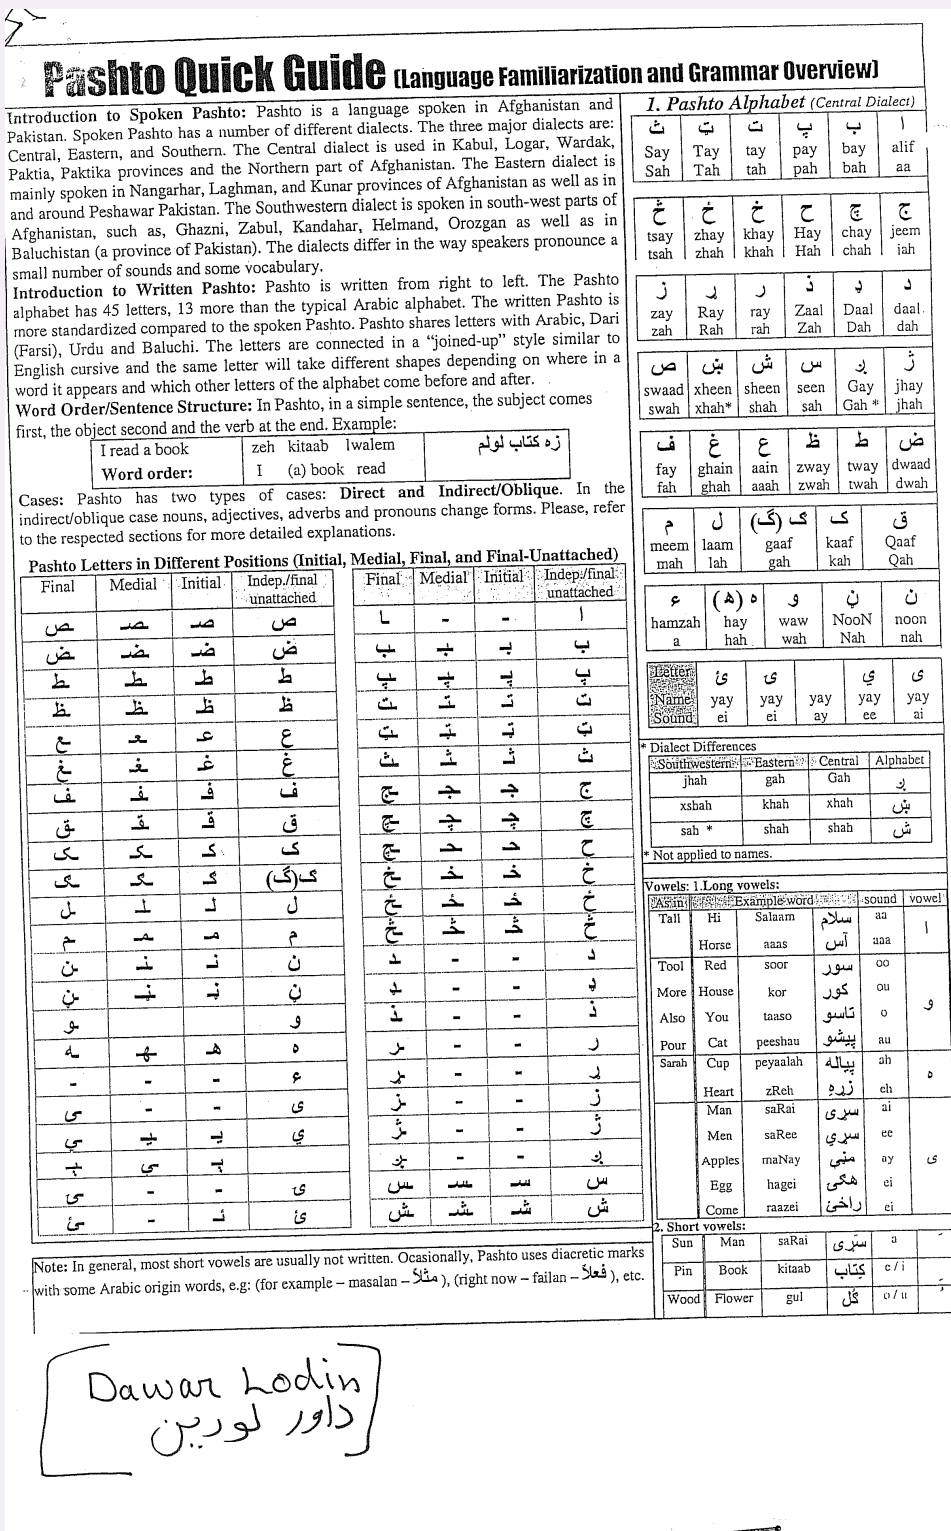 Pashto Quick Guide (Language Familiarization and Grammar Overview)
Introduction to Spoken Pashto: Pashto is a language spoken in Afghanistan and
Pakistan. Spoken Pashto has a number of different dialects. The three major dialects are:
Central, Eastern, and Southern. The Central dialect is used in Kabul, Logar, Wardak,
Paktia, Paktika provinces and the Northern part of Afghanistan. The Eastern dialect is
mainly spoken in Nangarhar, Laghman, and Kunar provinces of Afghanistan as well as in
and around Peshawar Pakistan. The Southwestern dialect is spoken in south-west parts of
Afghanistan, such as, Ghazni, Zabul, Kandahar, Helmand, Orozgan as well as in
Baluchistan (a province of Pakistan). The dialects differ in the way speakers pronounce a
small number of sounds and some vocabulary.
Introduction to Written Pashto: Pashto is written from right to left. The Pashto
alphabet has 45 letters, 13 more than the typical Arabic alphabet. The written Pashto is
more standardized compared to the spoken Pashto. Pashto shares letters with Arabic, Dari
(Farsi), Urdu and Baluchi. The letters are connected in a "joined-up" style similar to
English cursive and the same letter will take different shapes depending on where in a
word it appears and which other letters of the alphabet come before and after.
Word Order/Sentence Structure: In Pashto, in a simple sentence, the subject comes
first, the object second and the verb at the end. Example:
I read a book zeh kitaab lwalem زه کتاب لولم
Word order: I (a) book read
Cases: Pashto has two types of cases: Direct and Indirect/Oblique. In the
indirect/oblique case nouns, adjectives, adverbs and pronouns change forms. Please, refer
to the respected sections for more detailed explanations.
Pashto Letters in Different Positions (Initial, Medial, Final, and Final-Unattached)
Final Medial Initial Indep./final unattached
ـص ـصـ صـ ص
ـض ـضـ ضـ ض
ـط ـطـ طـ ط
ـظ ـظـ ظـ ظ
ـع ـعـ عـ ع
ـغ ـغـ غـ غ
ـف ـفـ فـ ف
ـق ـقـ قـ ق
ـک ـکـ کـ ک
ـګ ـګـ ګـ ګ(گ)
ـل ـلـ لـ ل
ـم ـمـ مـ م
ـن ـنـ نـ ن
ـڼ ـڼـ ڼـ ڼ
ـو و
ـه ـهـ هـ ه
- - - ء
ـی - - ی
ـي ـيـ يـ ي
ـې ـېـ ېـ
ـۍ - - ۍ
ـئ - ئـ ئ
Final Medial Initial Indep./final unattached
ـا - - ا
ـب ـبـ بـ ب
ـپ ـپـ پـ پ
ـت ـتـ تـ ت
ـټ ـټـ ټـ ټ
ـث ـثـ ثـ ث
ـج ـجـ جـ ج
ـچ ـچـ چـ چ
ـح ـحـ حـ ح
ـخ ـخـ خـ خ
ـځ ـځـ ځـ ځ
ـڅ ـڅـ څـ څ
ـد - - د
ـډ - - ډ
ـذ - - ذ
ـر - - ر
ـړ - - ړ
ـز - - ز
ـژ - - ژ
ـږ - - ږ
ـس ـسـ سـ س
ـش ـشـ شـ ش
Note: In general, most short vowels are usually not written. Ocasionally, Pashto uses diacretic marks
with some Arabic origin words, e.g: (for example – masalan – مثلاً), (right now – failan – فعلاً), etc.
1. Pashto Alphabet (Central Dialect)
ث ټ ت پ ب ا
Say Tay tay pay bay alif
Sah Tah tah pah bah aa
څ ځ خ ح چ ج
tsay zhay khay Hay chay jeem
tsah zhah khah Hah chah jah
ز ړ ر ذ ډ د
zay Ray ray Zaal Daal daal
zah Rah rah Zah Dah dah
ص ښ ش س ږ ژ
swaad xheen sheen seen Gay jhay
swah xhah* shah sah Gah * jhah
ف غ ع ظ ط ض
fay ghain aain zway tway dwaad
fah ghah aaah zwah twah dwah
م ل ګ (گ) ک ق
meem laam gaaf kaaf Qaaf
mah lah gah kah Qah
ء ه (ھ) و ڼ ن
hamzah hay waw NooN noon
a hah wah Nah nah
Letter ئ ۍ ي ی
Name yay yay yay yay yay
Sound ei ei ay ee ai
* Dialect Differences
Southwestern Eastern Central Alphabet
jhah gah Gah ږ
xsbah khah xhah ښ
sah * shah shah ش
* Not applied to names.
Vowels: 1.Long vowels:
As in Example word sound vowel
Tall Hi Salaam سلام aa ا
Horse aaas آس aaa
Tool Red soor سور oo و
More House kor کور ou
Also You taaso تاسو o
Pour Cat peeshau پیشو au
Sarah Cup peyaalah پیاله ah ه
Heart zReh زړه eh
Man saRai سړی ai ی
Men saRee سړي ee
Apples maNay مڼې ay
Egg hagei هګۍ ei
Come raazei راځئ ei
2. Short vowels:
Sun Man saRai سَړی a
Pin Book kitaab کِتاب e / i
Wood Flower gul ګُل o / u
Dawar Lodin
داور لودین